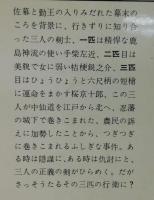 佐幕と勤王の入りみだれた幕末の
ころを背景に、行きずりに知り合
った三人の剣士、一匹は精悍な鹿
島神流の使い手柴左近、二匹目は
美貌で女に弱い桔梗鋭之介、三匹
目はひょうひょうと六尺柄の短槍
に運命をまかす桜京十郎、この三
人が中仙道を江戸から北へ、忍藩
の城下で巻きこまれた、農民の訴
えに加勢したことから、つぎつぎ
に巻きこまれるふしぎな事件。あ
る時は隠謀に、ある時は仇討にと、
三人の正義の剣がひらめく。だが
さっそうたるその三匹の行衛に？